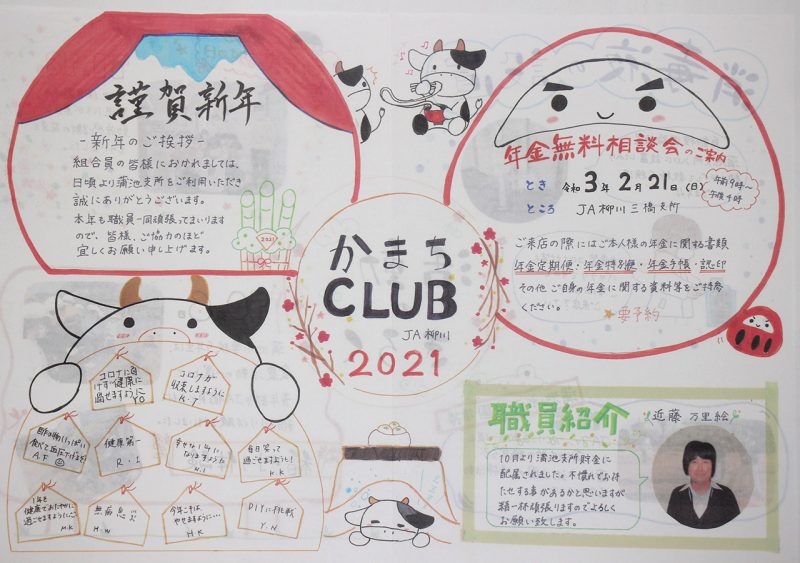 謹賀新年
-新年のご挨拶-
組合員の皆様におかれましては、
日頃より蒲池支所をご利用いただき
誠にありがとうございます。
本年も職員一同頑張ってまいります
ので、皆様、ご協力のほど
宜しくお願い申し上げます。
2021
かまち
CLUB
JA柳川
2021
年金無料相談会のご案内
とき 令和3年2月21日(日)
午前9時〜
午後4時
ところ JA柳川三橋支所
ご来店の際にはご本人様の年金に関する書類
年金定期便・年金特別便・年金手帳・認印
その他ご自身の年金に関する資料等をご持参
ください。
☆要予約
コロナに負
けず健康に
過せますように
Y.O
コロナが
収束しますように
K.T
食べて
A.F
健康第一
R.I
幸せな1年に
なりますように
毎日笑って
過ごせますように!
K.K
1年を
健康で
過ごせますように
M.K
無病息災
H.W
今年こそは
やせますように…
H.K
DIYに挑戦
Y.N
職員紹介
近藤 万里絵
10月より蒲池支所貯金に
配属されました。不慣れでお待
たせする事があるかと思いますが
精一杯頑張りますのでよろしく
お願い致します。